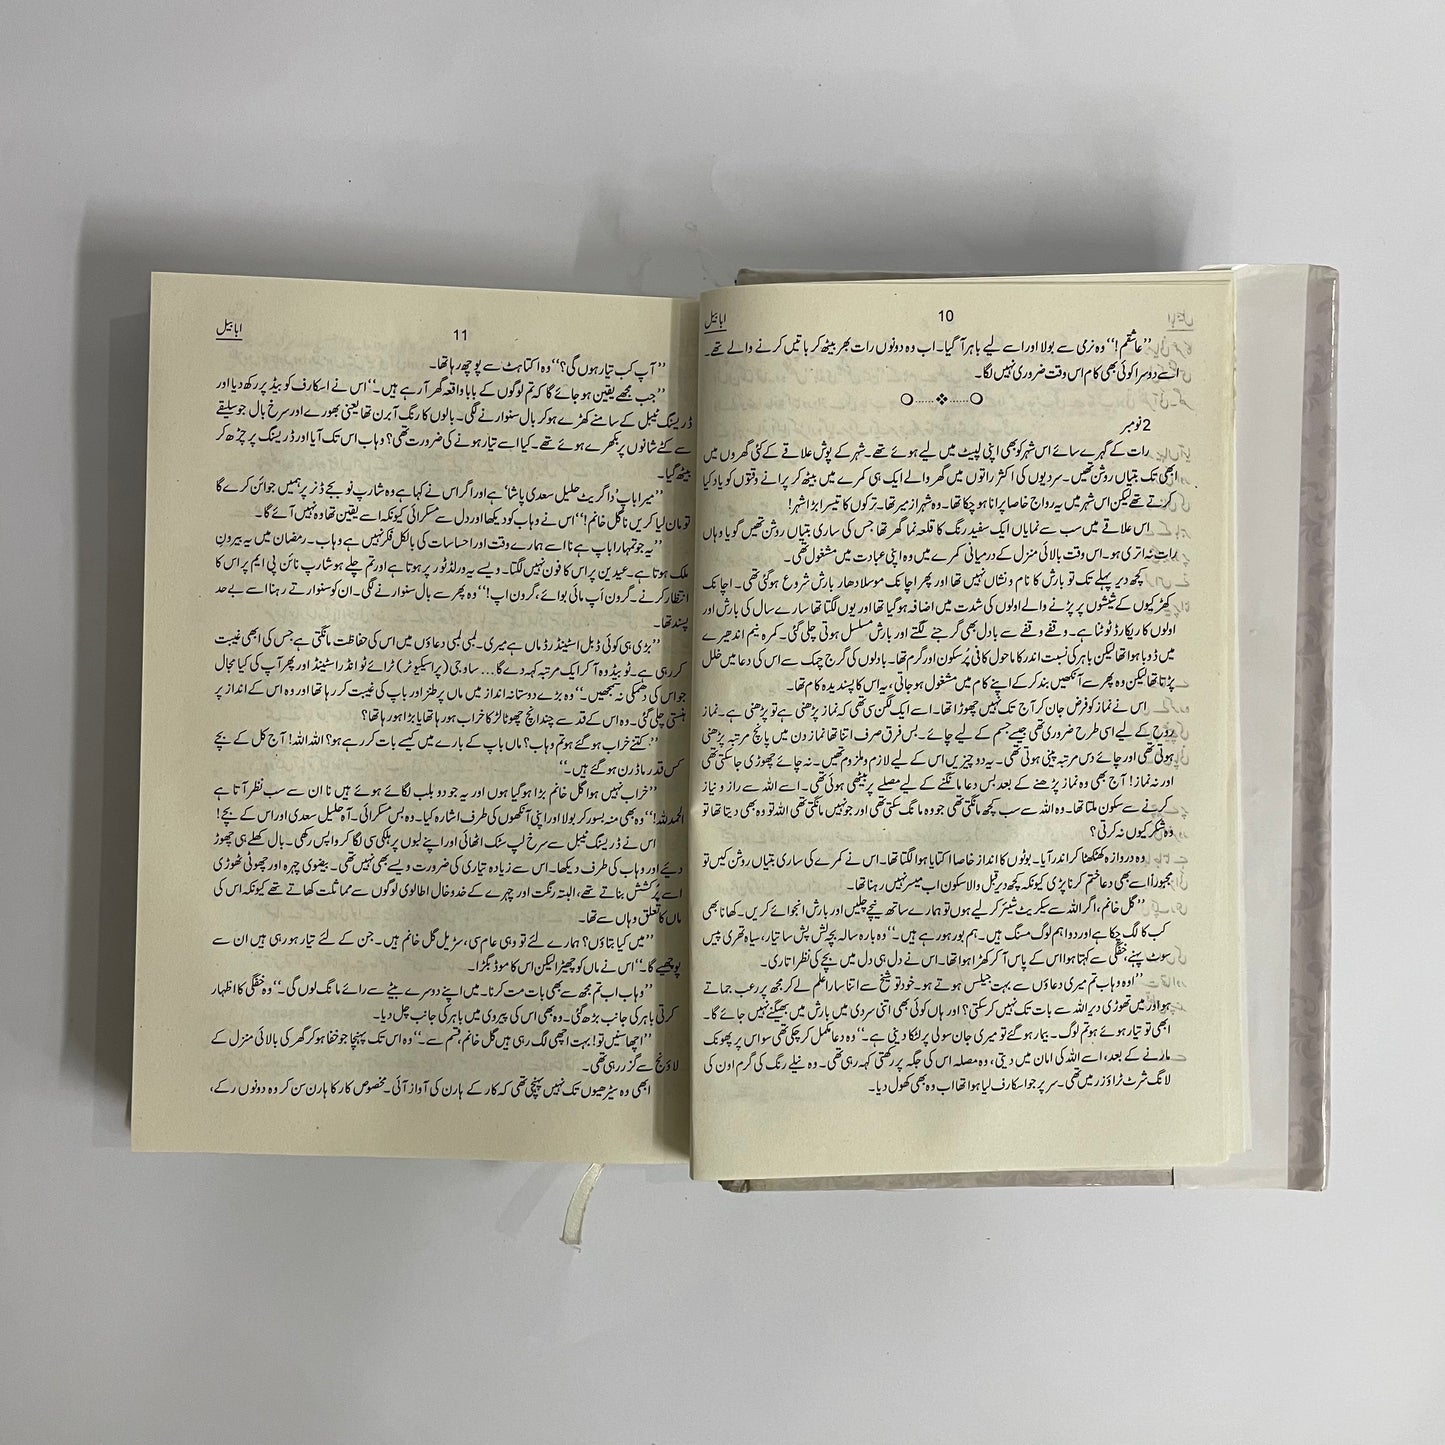 10
ابابیل
”عاشقم!“ وہ نرمی سے بولا اور اسے لیے باہر آ گیا۔ اب وہ دونوں رات بھر بیٹھ کر باتیں کرنے والے تھے۔
اسے دوسرا کوئی بھی کام اس وقت ضروری نہیں لگا۔
2 نومبر
رات کے گہرے سائے اس شہر کو بھی اپنی لپیٹ میں لیے ہوئے تھے۔ شہر کے پوش علاقے کے کئی گھروں میں
ابھی تک بتیاں روشن تھیں۔ سردیوں کی اکثر راتوں میں گھر والے ایک ہی کمرے میں بیٹھ کر پرانے وقتوں کو یاد کیا
کرتے تھے لیکن اس شہر میں یہ رواج خاصا پرانا ہو چکا تھا۔ وہ شہر ازمیر تھا۔ ترکوں کا تیسرا بڑا شہر!
اس علاقے میں سب سے نمایاں ایک سفید رنگ کا قلعہ نما گھر تھا جس کی ساری بتیاں روشن تھیں گویا وہاں
رات نہ اتری ہو۔ اس وقت بالائی منزل کے درمیانی کمرے میں وہ اپنی عبادت میں مشغول تھی۔
کچھ دیر پہلے تک تو بارش کا نام و نشاں نہیں تھا اور پھر اچانک موسلادھار بارش شروع ہو گئی تھی۔ اچانک
کھڑکیوں کے شیشوں پر پڑنے والے اولوں کی شدت میں اضافہ ہو گیا تھا اور یوں لگتا تھا سارے سال کی بارش اور
اولوں کا ریکارڈ ٹوٹنا ہے۔ وقفے وقفے سے بادل بھی گرجنے لگتے اور بارش مسلسل ہوتی چلی گئی۔ کمرہ نیم اندھیرے
میں ڈوبا ہوا تھا لیکن باہر کی نسبت اندر کا ماحول کافی پُرسکون اور گرم تھا۔ بادلوں کی گرج چمک سے اس کی دعا میں خلل
پڑتا تھا لیکن وہ پھر سے آنکھیں بند کر کے اپنے کام میں مشغول ہو جاتی، یہ اس کا پسندیدہ کام تھا۔
اس نے نماز کو فرض جان کر آج تک نہیں چھوڑا تھا۔ اسے ایک لگن سی تھی کہ نماز پڑھنی ہے تو پڑھنی ہے۔ نماز
روح کے لیے اسی طرح ضروری تھی جیسے جسم کے لیے چائے۔ بس فرق صرف اتنا تھا نماز دن میں پانچ مرتبہ پڑھنی
ہوتی تھی اور چائے دس مرتبہ پینی ہوتی تھی۔ یہ دو چیزیں اس کے لیے لازم و ملزوم تھیں۔ نہ چائے چھوڑی جا سکتی تھی
اور نہ نماز! آج بھی وہ نماز پڑھنے کے بعد بس دعا مانگنے کے لیے مصلے پر بیٹھی ہوئی تھی۔ اسے اللہ سے راز و نیاز
کرنے سے سکون ملتا تھا۔ وہ اللہ سے سب کچھ مانگتی تھی جو وہ مانگ سکتی تھی اور جو نہیں مانگتی تھی اللہ تو وہ بھی دیتا تھا تو
وہ شکر کیوں نہ کرتی؟
وہ دروازہ کھٹکھٹا کر اندر آیا۔ بوٹوں کا انداز خاصا اکتایا ہوا لگتا تھا۔ اس نے کمرے کی ساری بتیاں روشن کیں تو
مجبوراً اسے بھی دعا ختم کرنا پڑی کیونکہ کچھ دیر قبل والا سکون اب میسر نہیں رہنا تھا۔
”گل خانم، اگر اللہ سے سیکریٹ شیئر کر لیے ہوں تو ہمارے ساتھ نیچے چلیں اور بارش انجوائے کریں۔ کھانا بھی
کب کا لگ چکا ہے اور دو اہم لوگ مسنگ ہیں۔ ہم بور ہو رہے ہیں۔“ وہ بارہ سالہ بچہ لش پش سا تیار، سیاہ تھری پیس
سوٹ پہنے، خفگی سے کہتا ہوا اس کے پاس آ کر کھڑا ہوا تھا۔ اس نے دل ہی دل میں بچے کی نظر اتاری۔
”اوہ وہاب تم میری دعاؤں سے بہت جیلس ہوتے ہو۔ خود تو شیخ سے اتنا سارا علم لے کر مجھ پر رعب جماتے
ہو اور میں تھوڑی دیر اللہ سے بات تک نہیں کر سکتی؟ اور ہاں کوئی بھی اتنی سردی میں بارش میں بھیگنے نہیں جائے گا۔
ابھی تو تیار ہوئے ہو تم لوگ۔ بیمار ہو گئے تو میری جان سولی پر لٹکا دینی ہے۔“ وہ دعا مکمل کر چکی تھی سو اس پر پھونک
مارنے کے بعد، اسے اللہ کی امان میں دیتی، وہ مصلہ اس کی جگہ پر رکھتی کہہ رہی تھی۔ وہ نیلے رنگ کی گرم اون کی
لانگ شرٹ ٹراؤزر میں تھی۔ سر پر جو اسکارف لیا ہوا تھا اب وہ بھی کھول دیا۔
11
ابابیل
”آپ کب تیار ہوں گی؟“ وہ اکتاہٹ سے پوچھ رہا تھا۔
”جب مجھے یقین ہو جائے گا کہ تم لوگوں کے بابا واقعہ گھر آ رہے ہیں۔“ اس نے اسکارف کو بیڈ پر رکھ دیا اور
ڈریسنگ ٹیبل کے سامنے کھڑے ہو کر بال سنوارنے لگی۔ بالوں کا رنگ آبرن تھا یعنی بھورے اور سرخ بال جو سلیقے
سے کٹے شانوں پر بکھرے ہوئے تھے۔ کیا اسے تیار ہونے کی ضرورت تھی؟ وہاب اس تک آیا اور ڈریسنگ پر چڑھ کر
بیٹھ گیا۔
”میرا باپ ’دا گریٹ حلیل سعدی پاشا‘ ہے اور اگر اس نے کہا ہے وہ شارپ نو بجے ڈنر پر ہمیں جوائن کرے گا
تو مان لیا کریں نا گل خانم!“ اس نے وہاب کو دیکھا اور دل سے مسکرائی کیونکہ اسے یقین تھا وہ نہیں آئے گا۔
”یہ جو تمہارا باپ ہے نا اسے ہمارے وقت اور احساسات کی بالکل فکر نہیں ہے وہاب۔ رمضان میں یہ بیرون
ملک ہوتا ہے۔ عیدین پر اس کا فون نہیں لگتا۔ ویسے یہ ورلڈ ٹور پر ہوتا ہے اور تم چلے ہو شارپ نائن پی ایم پر اس کا
انتظار کرنے۔ گرون اَپ مائی بوائے، گرون اپ!“ وہ پھر سے بال سنوارنے لگی۔ ان کو سنوارتے رہنا اسے بے حد
پسند تھا۔
”بڑی ہی کوئی ڈبل اسٹینڈرڈ ماں ہے میری۔ لمبی لمبی دعاؤں میں اس کی حفاظت مانگتی ہے جس کی ابھی غیبت
کر رہی ہے۔ ٹو بیڈ وہ آ کر ایک مرتبہ کہہ دے گا... ساوجی (پراسیکیوٹر) ٹرائے ٹو انڈر اسٹینڈ اور پھر آپ کی کیا مجال
جو اس کی دھمکی نہ سمجھیں۔“ وہ بڑے دوستانہ انداز میں ماں پر طنز اور باپ کی غیبت کر رہا تھا اور وہ اس کے انداز پر
ہنستی چلی گئی۔ وہ اس کے قد سے چند انچ چھوٹا لڑکا خراب ہو رہا تھا یا بڑا ہو رہا تھا؟
”کتنے خراب ہو گئے ہو تم وہاب؟ ماں باپ کے بارے میں کیسے بات کر رہے ہو؟ اللہ اللہ! آج کل کے بچے
کس قدر ماڈرن ہو گئے ہیں۔“
”خراب نہیں ہوا گل خانم بڑا ہو گیا ہوں اور یہ جو دو بلب لگائے ہوئے ہیں نا ان سے سب نظر آتا ہے
الحمدللہ!“ وہ بھی منہ بسور کر بولا اور اپنی آنکھوں کی طرف اشارہ کیا۔ وہ بس مسکرائی۔ آہ حلیل سعدی اور اس کے بچے!
اس نے ڈریسنگ ٹیبل سے سرخ لپ سٹک اٹھائی اور اپنے لبوں پر ہلکی سی لگا کر واپس رکھی۔ بال کھلے ہی چھوڑ
دیئے اور وہاب کی طرف دیکھا۔ اس سے زیادہ تیاری کی ضرورت ویسے بھی نہیں تھی۔ بیضوی چہرہ اور چھوٹی ٹھوڑی
اسے پُرکشش بناتے تھے، البتہ رنگت اور چہرے کے خدوخال اطالوی لوگوں سے مماثلت کھاتے تھے کیونکہ اس کی
ماں کا تعلق وہاں سے تھا۔
”میں کیا بتاؤں؟ ہمارے لئے تو وہی عام سی، سڑیل گل خانم ہیں۔ جن کے لئے تیار ہو رہی ہیں ان سے
پوچھیے گا۔“ اس نے ماں کو چھیڑا لیکن اس کا موڈ بگڑا۔
”وہاب اب تم مجھ سے بھی بات مت کرنا۔ میں اپنے دوسرے بیٹے سے رائے مانگ لوں گی۔“ وہ خفگی کا اظہار
کرتی باہر کی جانب بڑھ گئی۔ وہ بھی اس کی پیروی میں باہر کی جانب چل دیا۔
”اچھا سنیں تو! بہت اچھی لگ رہی ہیں گل خانم، قسم سے۔“ وہ اس تک پہنچا جو خفا ہو کر گھر کی بالائی منزل کے
لاؤنج سے گزر رہی تھی۔
ابھی وہ سیڑھیوں تک نہیں پہنچی تھی کہ کار کے ہارن کی آواز آئی۔ مخصوص کار کا ہارن سن کر وہ دونوں رکے،